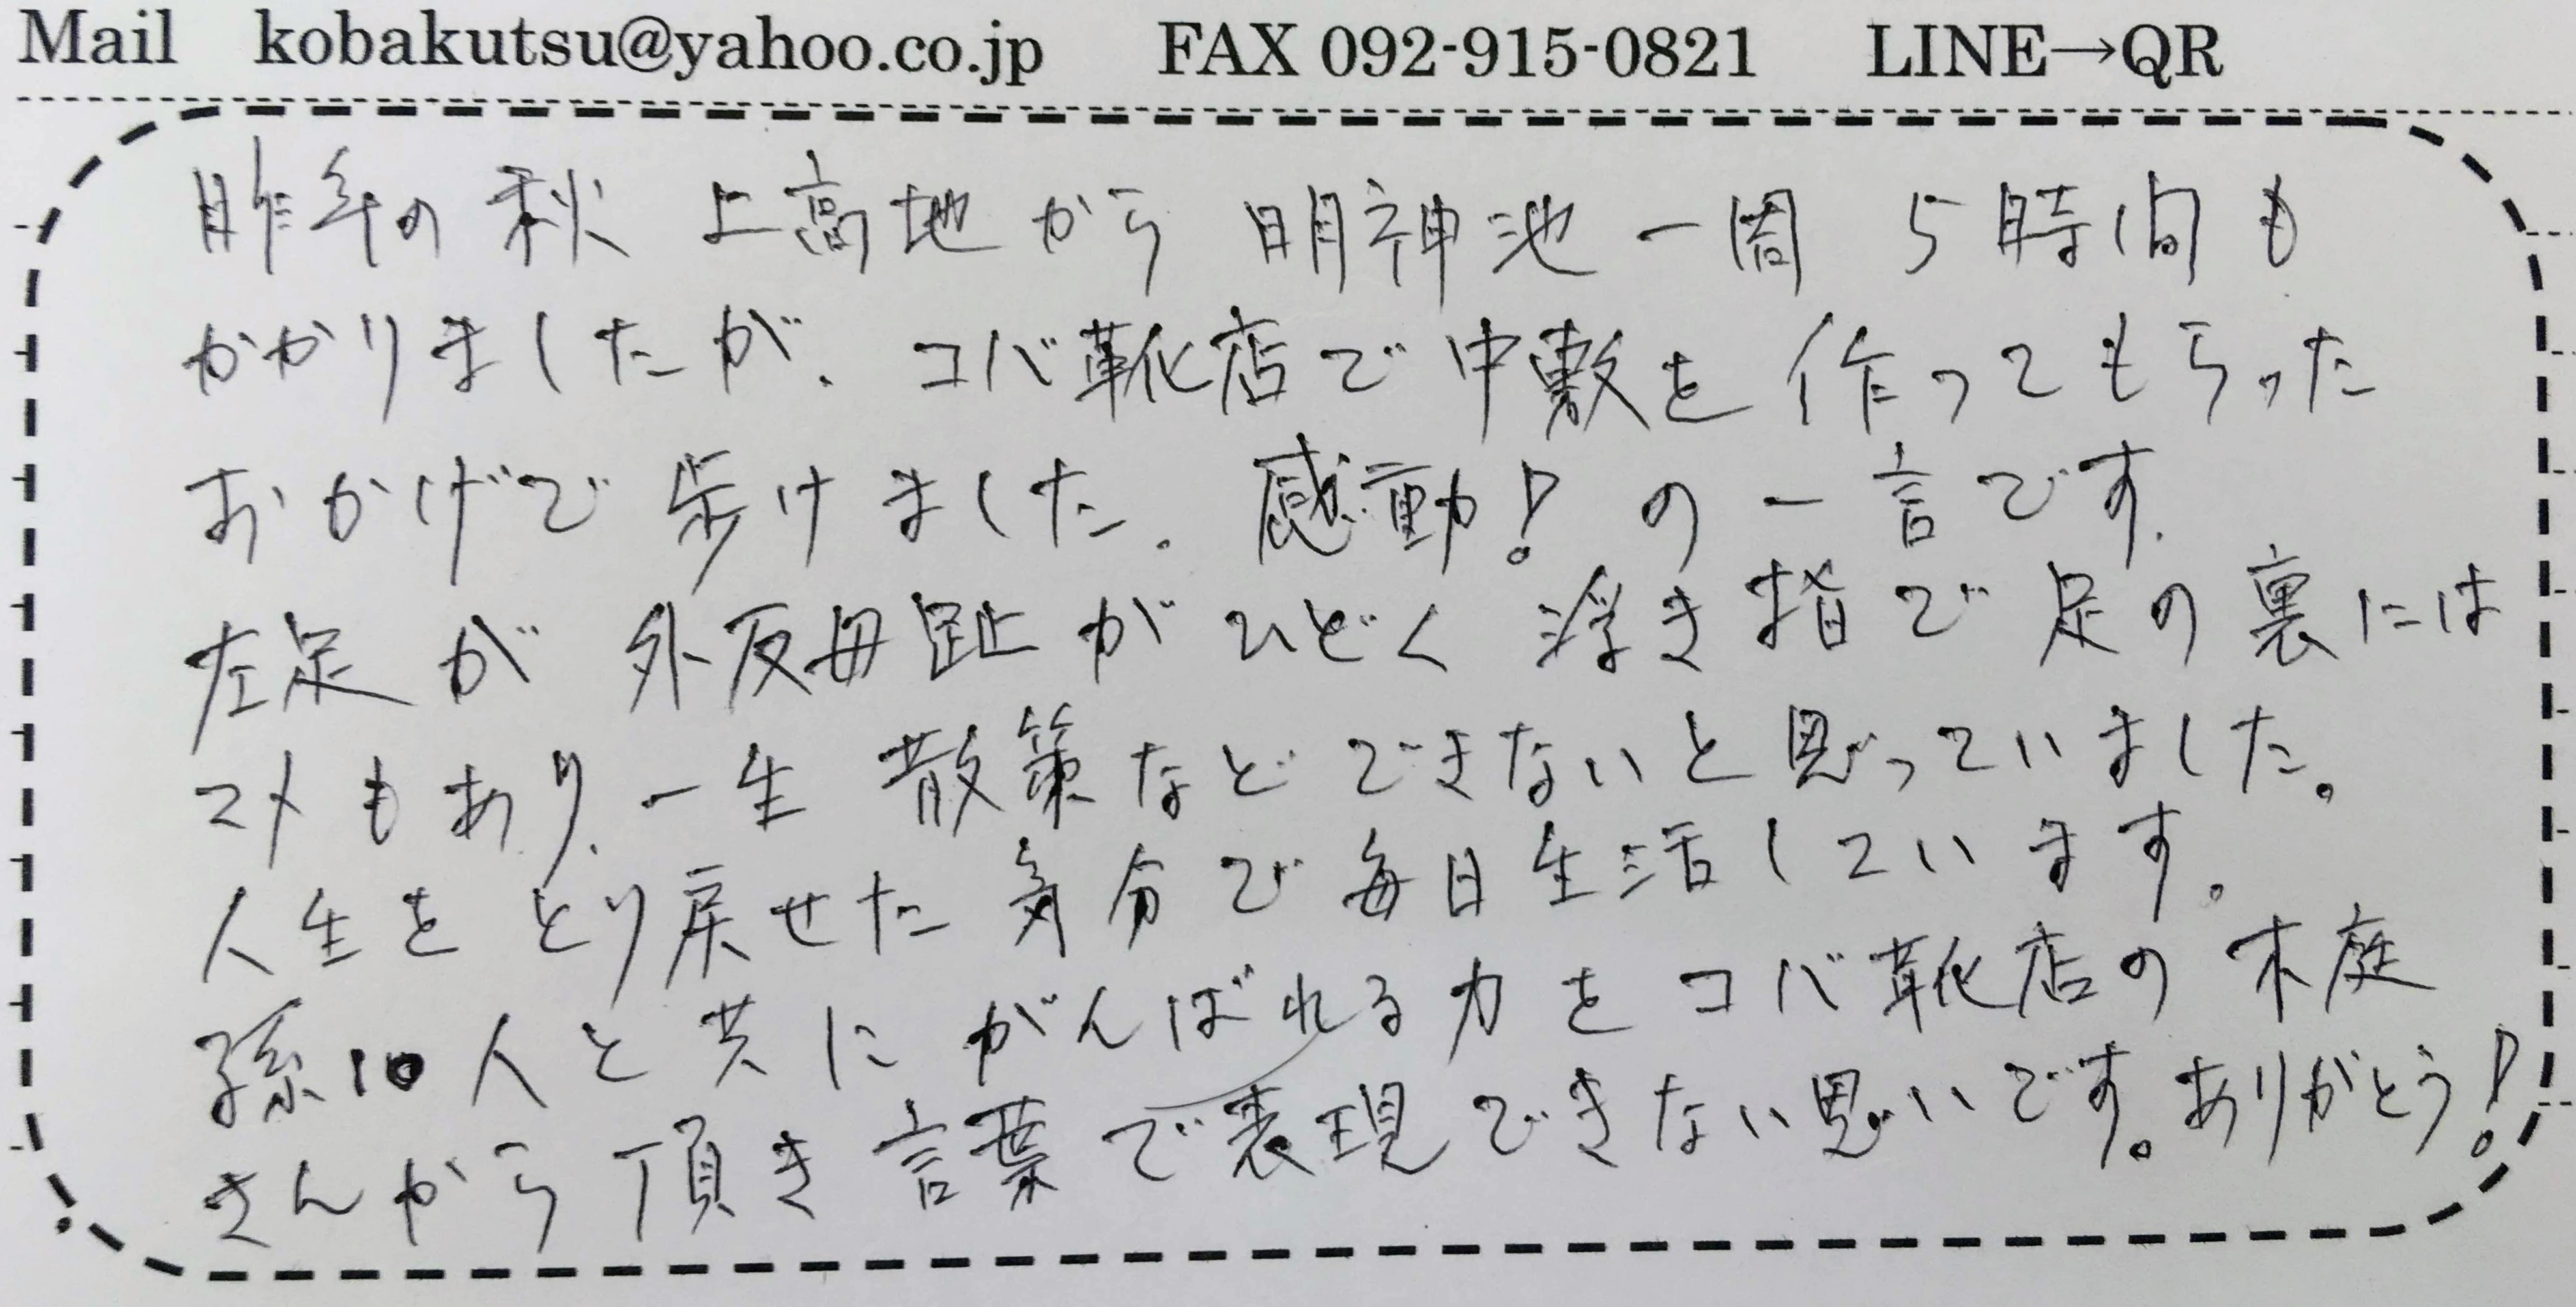 Mail kobakutsu@yahoo.co.jp FAX 092-915-0821 LINE→QR
昨年の秋 上高地から 明神池一周 5時間も
かかりましたが、コバ靴店で中敷を作ってもらった
おかげで歩けました。感動!の一言です。
左足が外反母趾がひどく浮き指で足の裏には
マメもあり、一生 散策などできないと思っていました。
人生をとり戻せた気分で毎日生活しています。
孫10人と共にがんばれる力をコバ靴店の木庭
さんから頂き言葉で表現できない思いです。ありがとう!